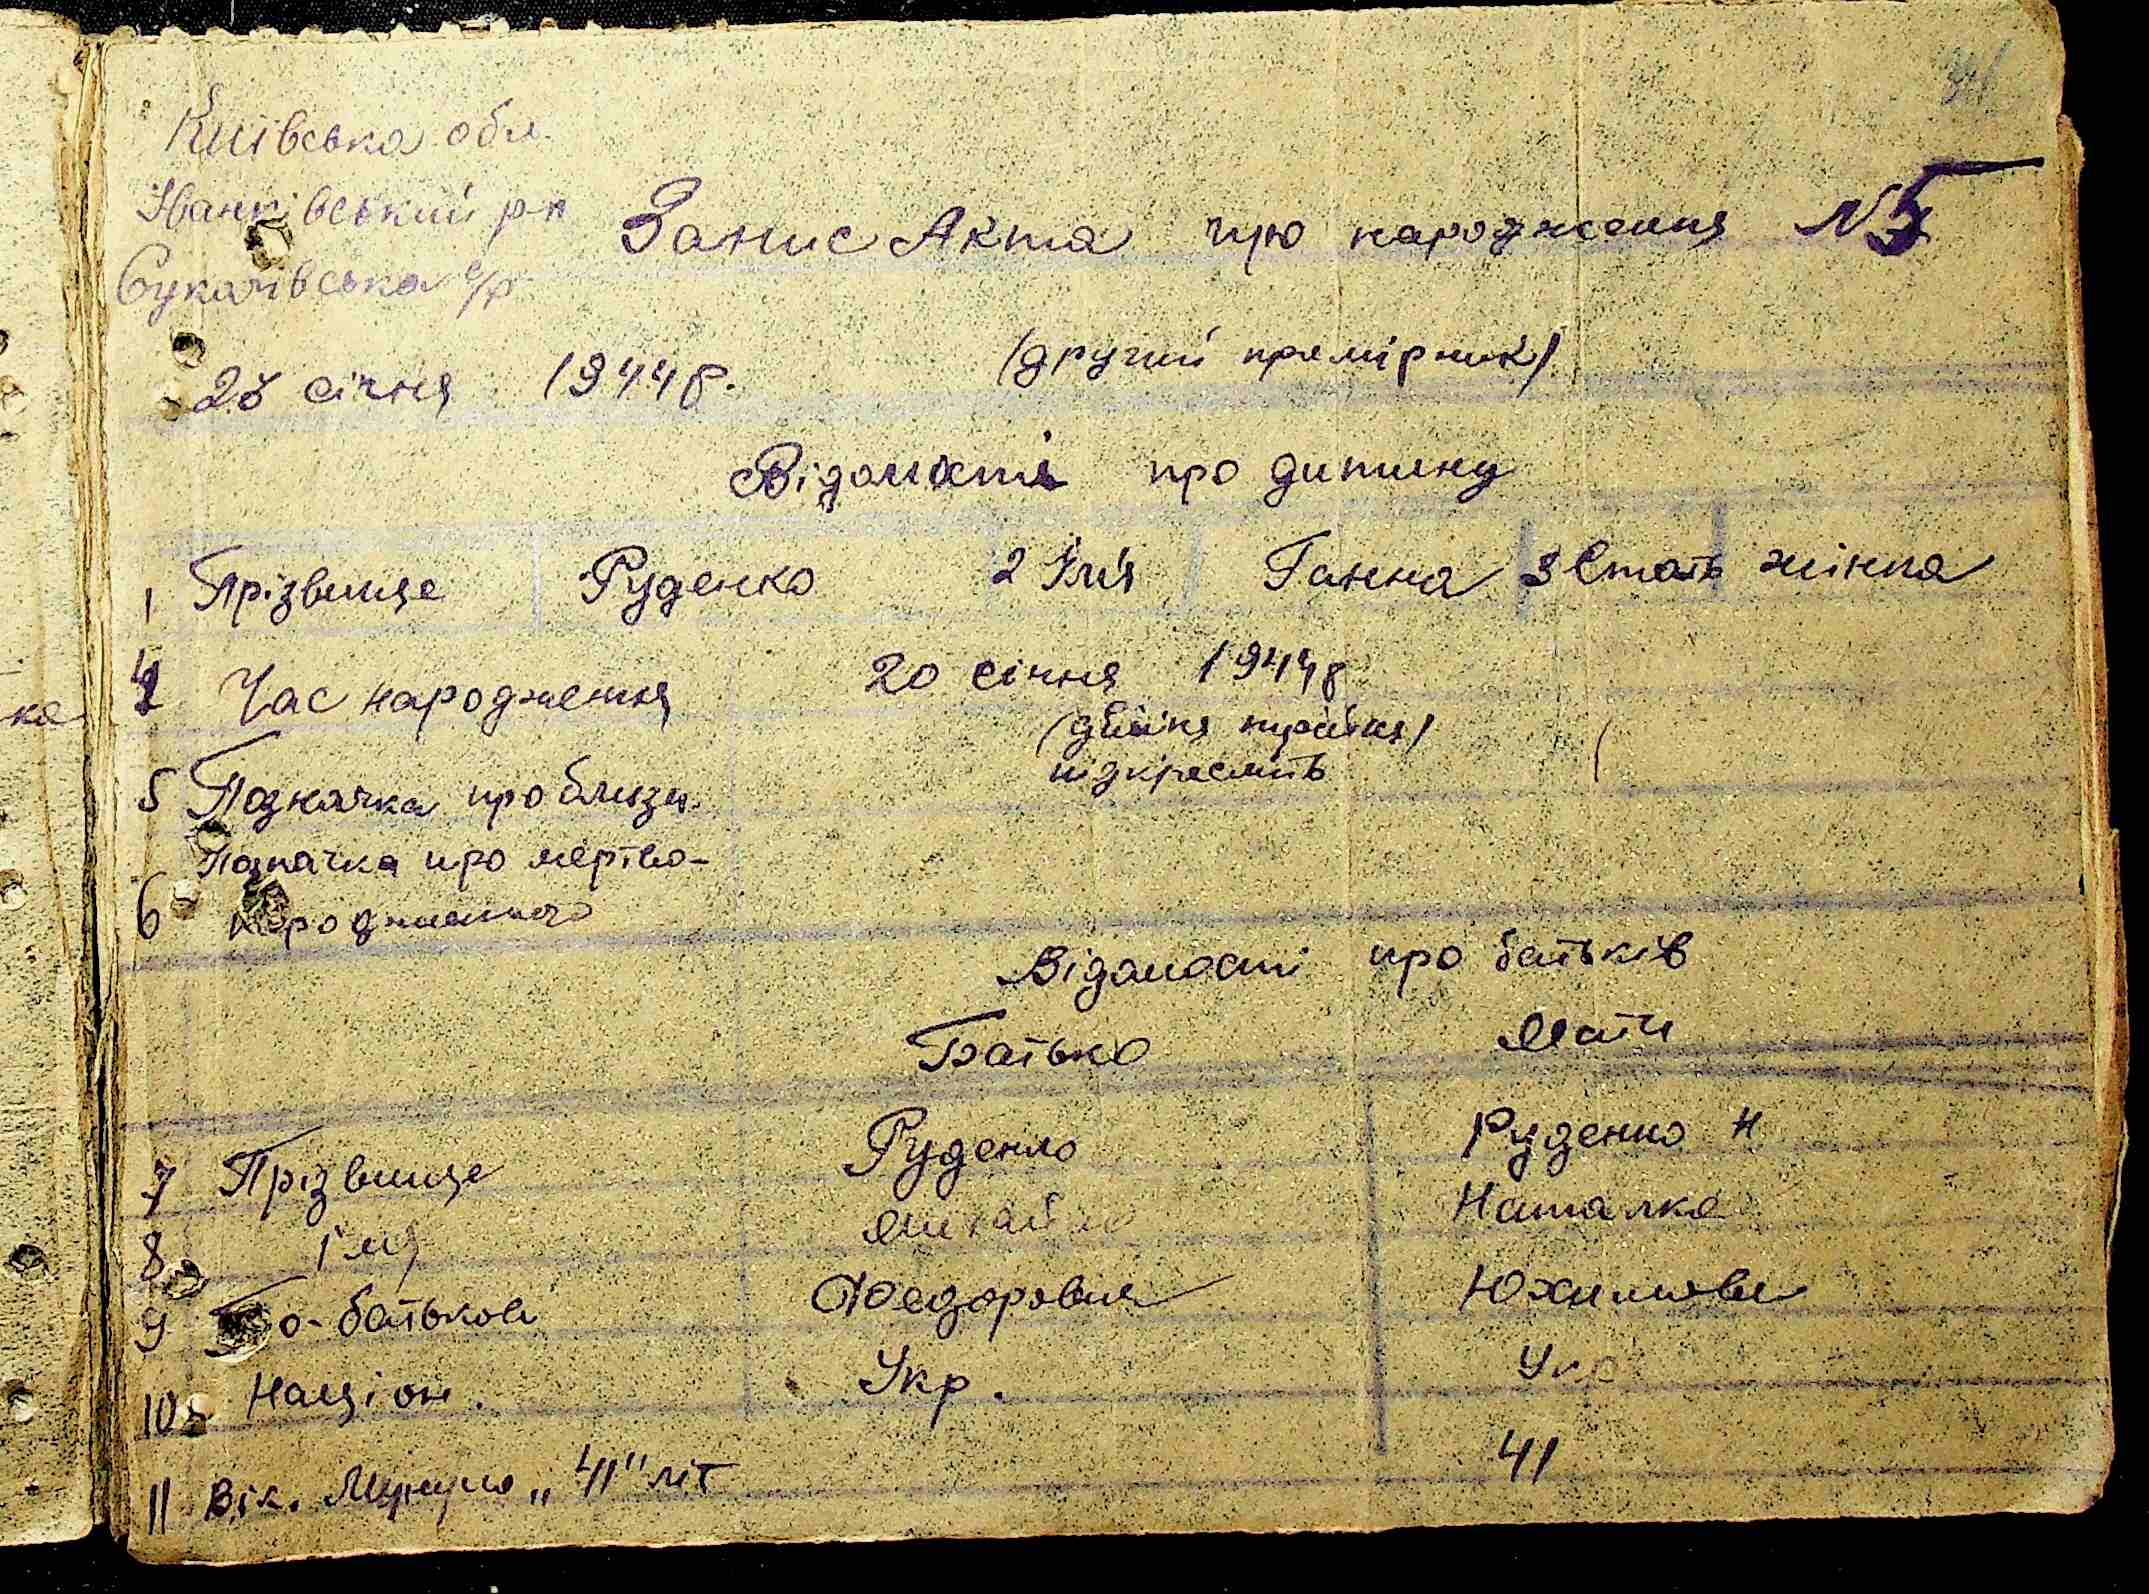 Київська обл.
Іванківський р-н
Сукачівська с/р
Запис Акта про народження N 5
23 січня 1944 р.
(другий премірник)
Відомості про дитину
1 Прізвище Руденко 2 Ім'я Ганна 3 Стать жінка
4 Час народження 20 січня 1944 р
(двійня трійня)
підкреслить
5 Позначка про близн.
Позначка про мертво-
6 народженого
Відомості про батьків
Батько Мати
7 Прізвище Руденко Руденко Н
8 ім'я Михайло Наталка
9 По-батькові Федорович Юхимовн
10 Націон. Укр. Укр
11 Вік. Минуло „41" літ 41
ка